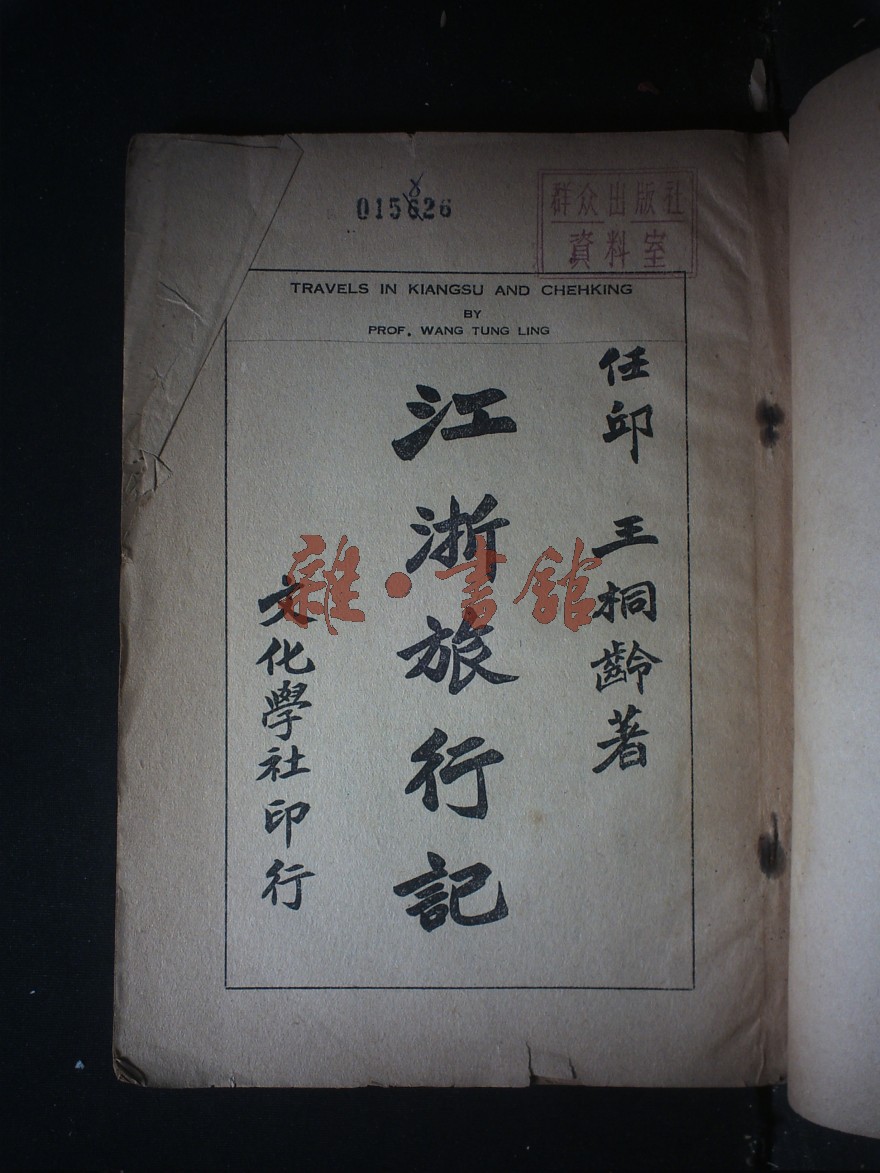 015626
8
群众出版社
資料室
TRAVELS IN KIANGSU AND CHEHKING
BY
PROF. WANG TUNG LING
任邱 王桐齡著
江浙旅行記
文化學社印行
雜·書館